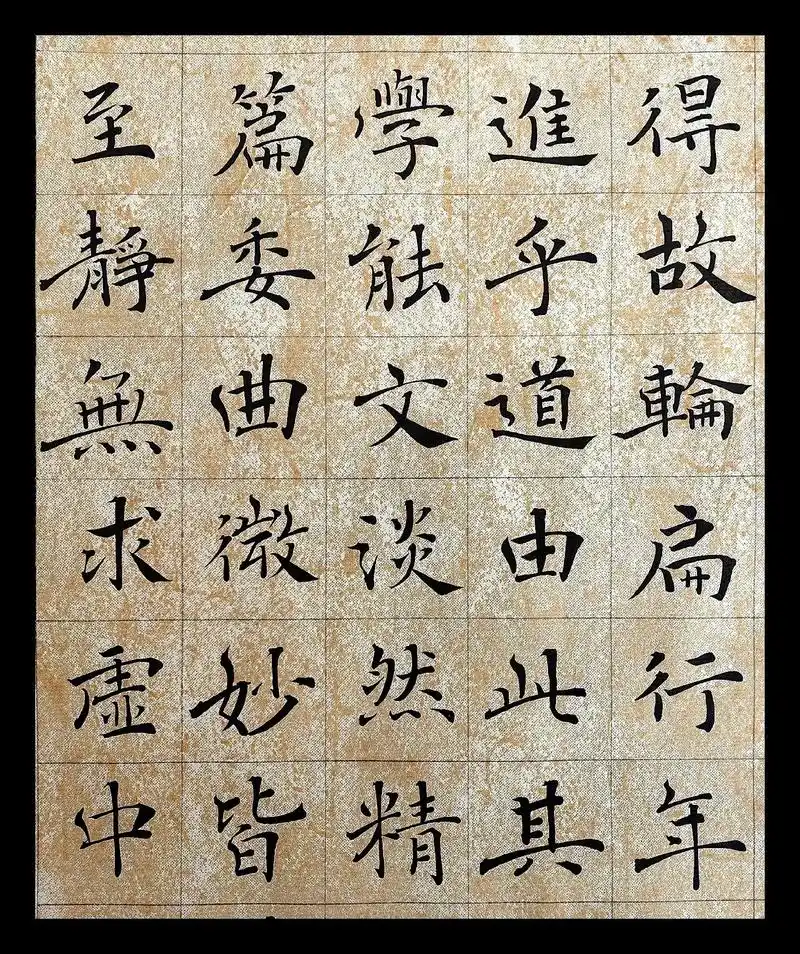 得故輪扁行年
進乎道由此其
學能文淡然精
篇委曲微妙皆
至靜無求虛中